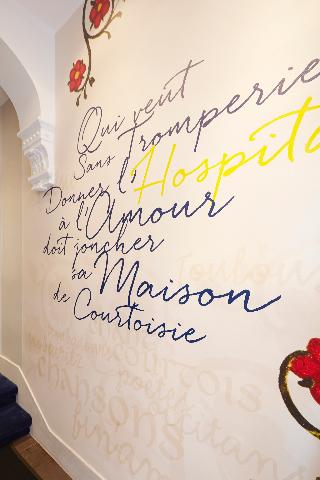 Qui veut
Sans Tromperie
Donner l'Hospita
à l'Amour
doit joncher
sa Maison
de Courtoisie
Toulou
courtois
chansons